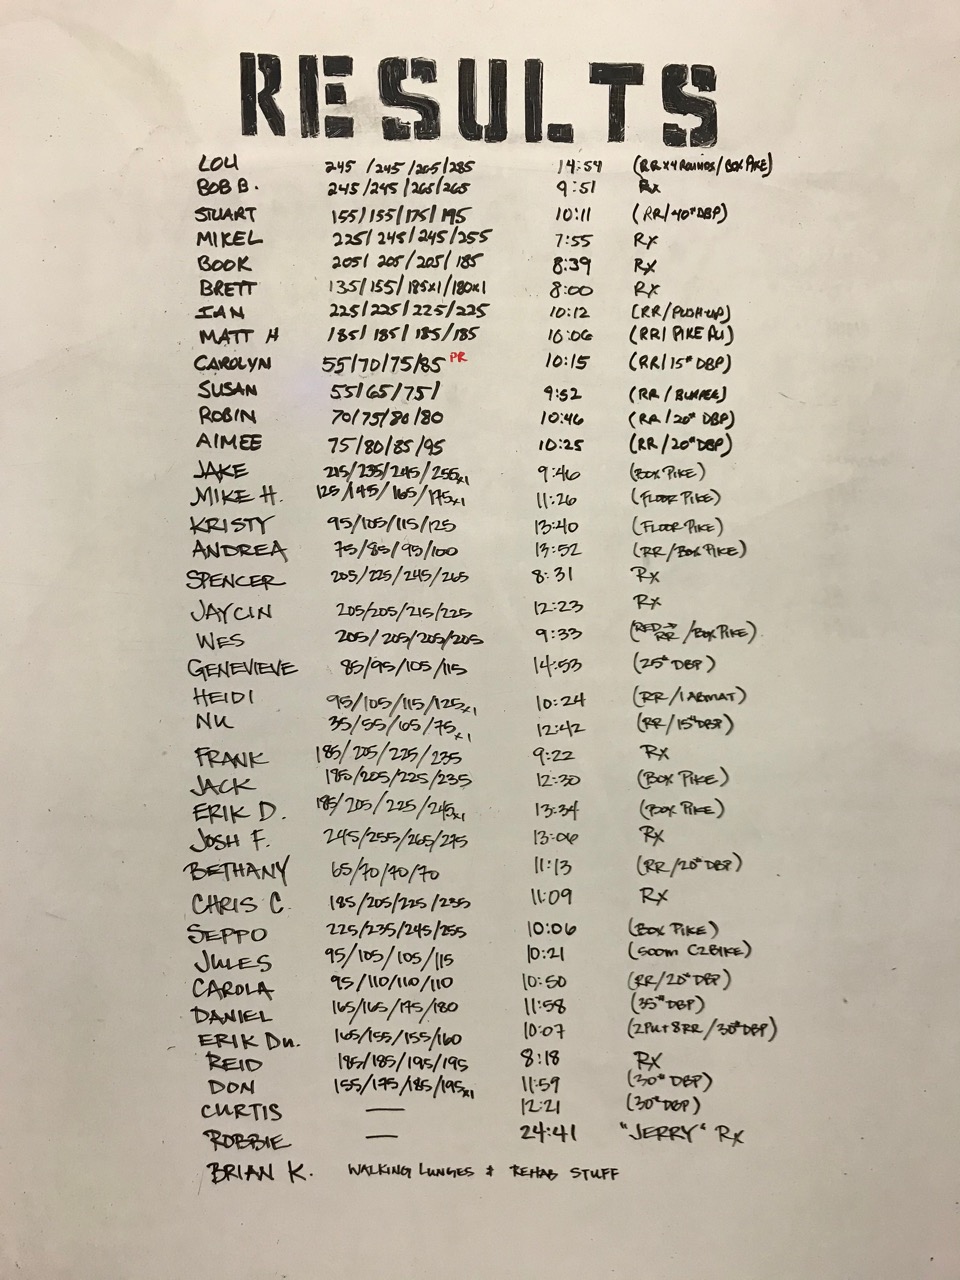 RESULTS
LOU 245 /245 /265/285 14:54 (RR x 4 ROUNDS/BOX PIKE)
BOB B. 245/245/265/265 9:51 Rx
STUART 155/155/175/195 10:11 (RR/40# DBP)
MIKEL 225/245/245/255 7:55 Rx
BOOK 205/205/205/185 8:39 Rx
BRETT 135/155/185x1/180x1 8:00 Rx
IAN 225/225/225/225 10:12 (RR/PUSH-UP)
MATT H 185/185/185/185 10:06 (RR/PIKE PU)
CAROLYN 55/70/75/85 PR 10:15 (RR/15# DBP)
SUSAN 55/65/75/ 9:52 (RR/BURPEE)
ROBIN 70/75/80/80 10:46 (RR/20# DBP)
AIMEE 75/80/85/95 10:25 (RR/20# DBP)
JAKE 215/235/245/255x1 9:46 (BOX PIKE)
MIKE H. 125/145/165/175x1 11:26 (FLOOR PIKE)
KRISTY 95/105/115/125 13:40 (FLOOR PIKE)
ANDREA 75/85/95/100 13:52 (RR/BOX PIKE)
SPENCER 205/225/245/265 8:31 Rx
JAYCIN 205/205/215/225 12:23 Rx
WES 205/205/205/205 9:33 (RED→RR/BOX PIKE)
GENEVIEVE 85/95/105/115 14:53 (25# DBP)
HEIDI 95/105/115/125x1 10:24 (RR/1 ABMAT)
NU 35/55/65/75x1 12:42 (RR/15# DBP)
FRANK 185/205/225/235 9:22 Rx
JACK 185/205/225/235 12:30 (BOX PIKE)
ERIK D. 185/205/225/245x1 13:34 (BOX PIKE)
JOSH F. 245/255/265/275 13:06 Rx
BETHANY 65/70/70/70 11:13 (RR/20# DBP)
CHRIS C. 185/205/225/235 11:09 Rx
SEPPO 225/235/245/255 10:06 (BOX PIKE)
JULES 95/105/105/115 10:21 (500m C2BIKE)
CAROLA 95/110/110/110 10:50 (RR/20# DBP)
DANIEL 165/165/175/180 11:58 (35# DBP)
ERIK Du. 165/155/155/160 10:07 (2PU+8RR/30# DBP)
REID 185/185/195/195 8:18 Rx
DON 155/175/185/195x1 11:59 (30# DBP)
CURTIS — 12:21 (30# DBP)
ROBBIE — 24:41 "JERRY" Rx
BRIAN K. WALKING LUNGES & REHAB STUFF